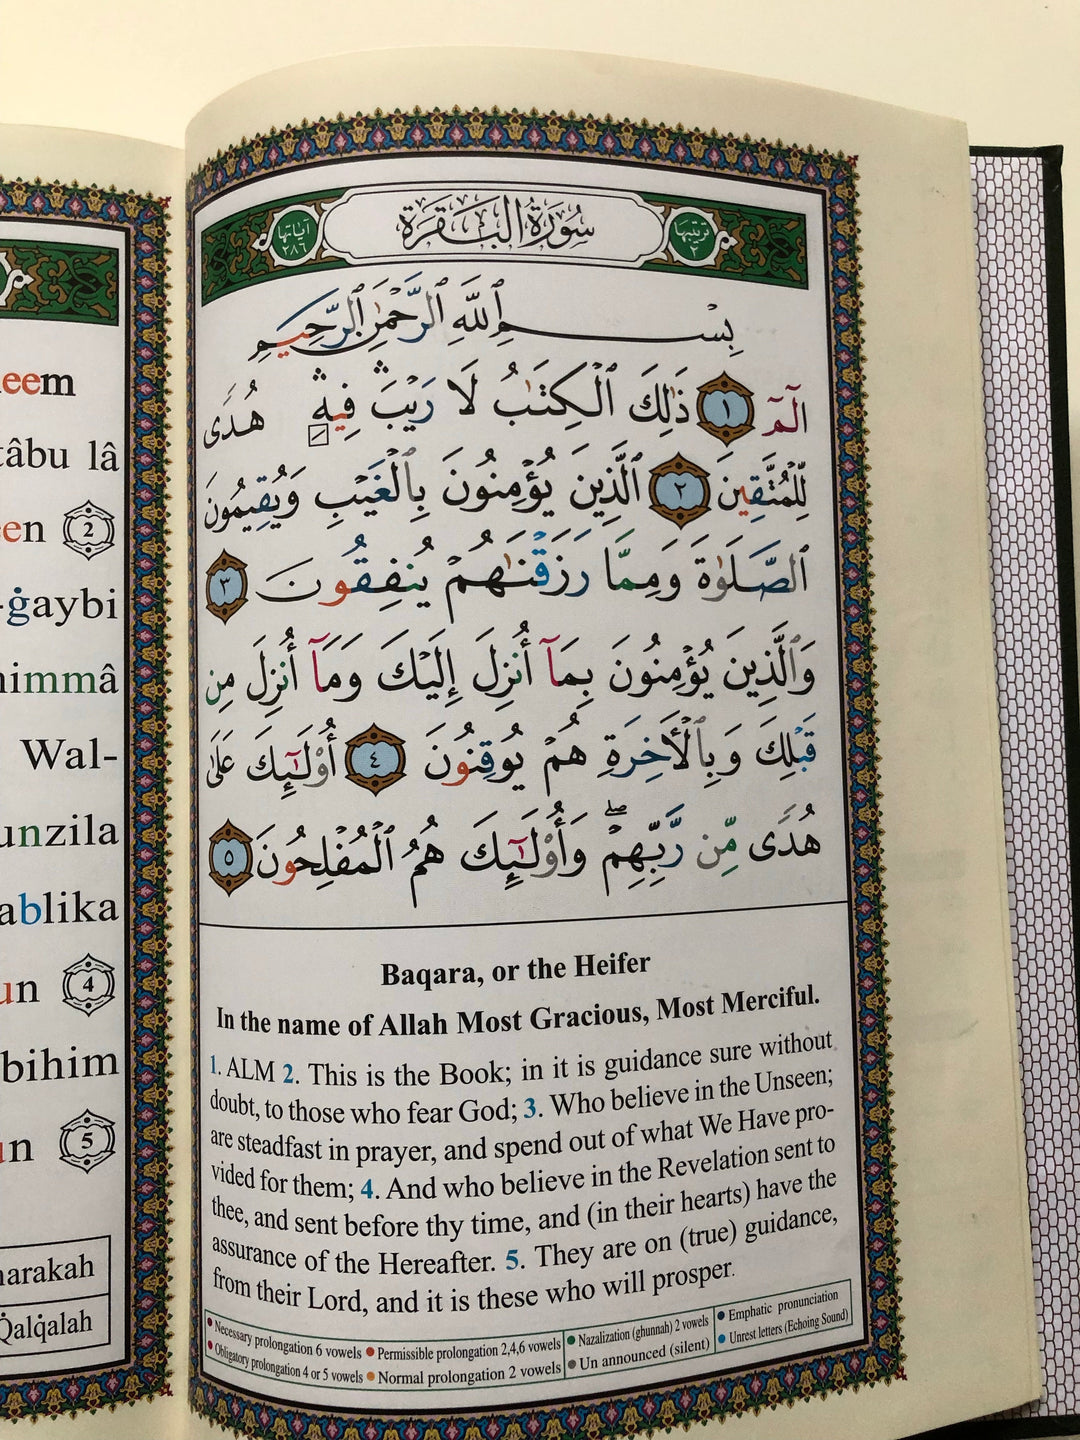 eem
tâbu lâ
een 2
-ġaybi
nimmâ
Wal-
unzila
ablika
un 4
bihim
un 5
harakah
Q̇alq̇alah
ترتيبها ٢ سُورَةُ البَقَرَة آياتها ٢٨٦
بِسْمِ ٱللَّهِ ٱلرَّحْمَٰنِ ٱلرَّحِيمِ
الٓمٓ ١ ذَٰلِكَ ٱلْكِتَٰبُ لَا رَيْبَ ۛ فِيهِ ۛ هُدًى
لِّلْمُتَّقِينَ ٢ ٱلَّذِينَ يُؤْمِنُونَ بِٱلْغَيْبِ وَيُقِيمُونَ
ٱلصَّلَوٰةَ وَمِمَّا رَزَقْنَٰهُمْ يُنفِقُونَ ٣
وَٱلَّذِينَ يُؤْمِنُونَ بِمَآ أُنزِلَ إِلَيْكَ وَمَآ أُنزِلَ مِن
قَبْلِكَ وَبِٱلْأَخِرَةِ هُمْ يُوقِنُونَ ٤ أُو۟لَٰٓئِكَ عَلَىٰ
هُدًى مِّن رَّبِّهِمْ ۖ وَأُو۟لَٰٓئِكَ هُمُ ٱلْمُفْلِحُونَ ٥
Baqara, or the Heifer
In the name of Allah Most Gracious, Most Merciful.
1. ALM 2. This is the Book; in it is guidance sure without
doubt, to those who fear God; 3. Who believe in the Unseen;
are steadfast in prayer, and spend out of what We Have pro-
vided for them; 4. And who believe in the Revelation sent to
thee, and sent before thy time, and (in their hearts) have the
assurance of the Hereafter. 5. They are on (true) guidance,
from their Lord, and it is these who will prosper.
Necessary prolongation 6 vowels Permissible prolongation 2,4,6 vowels Nazalization (ghunnah) 2 vowels Emphatic pronunciation
Obligatory prolongation 4 or 5 vowels Normal prolongation 2 vowels Un announced (silent) Unrest letters (Echoing Sound)